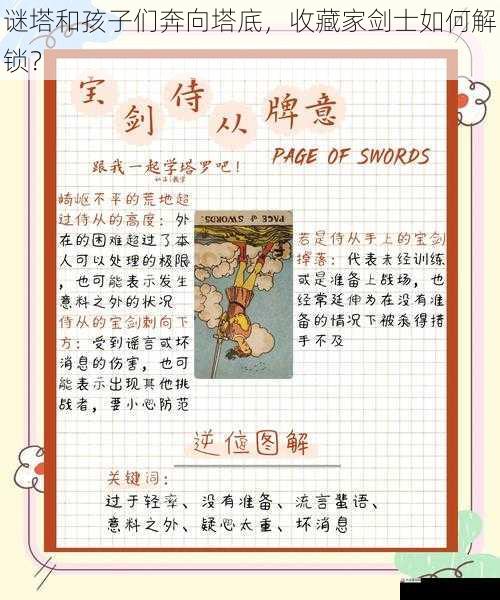 谜塔和孩子们奔向塔底，收藏家剑士如何解
锁？
宝剑侍从牌意
跟我一起学塔罗吧！
PAGE OF SWORDS
崎岖不平的荒地超
过侍从的高度：外
在的困难超过了本
人可以处理的极限
，也可能表示发生
意料之外的状况
侍从的宝剑刺向下
方：受到谣言或坏
消息的伤害，也可
能表示出现其他挑
战者，要小心防范
PAGE OF SWORDS.
若是侍从手上的宝剑
掉落：代表未经训练
或是准备上战场，也
经常延伸为在没有准
备的情况下被杀得措
手不及
逆位图解
关键词：
过于轻率、没有准备、流言蜚语、
意料之外、疑心太重、坏消息